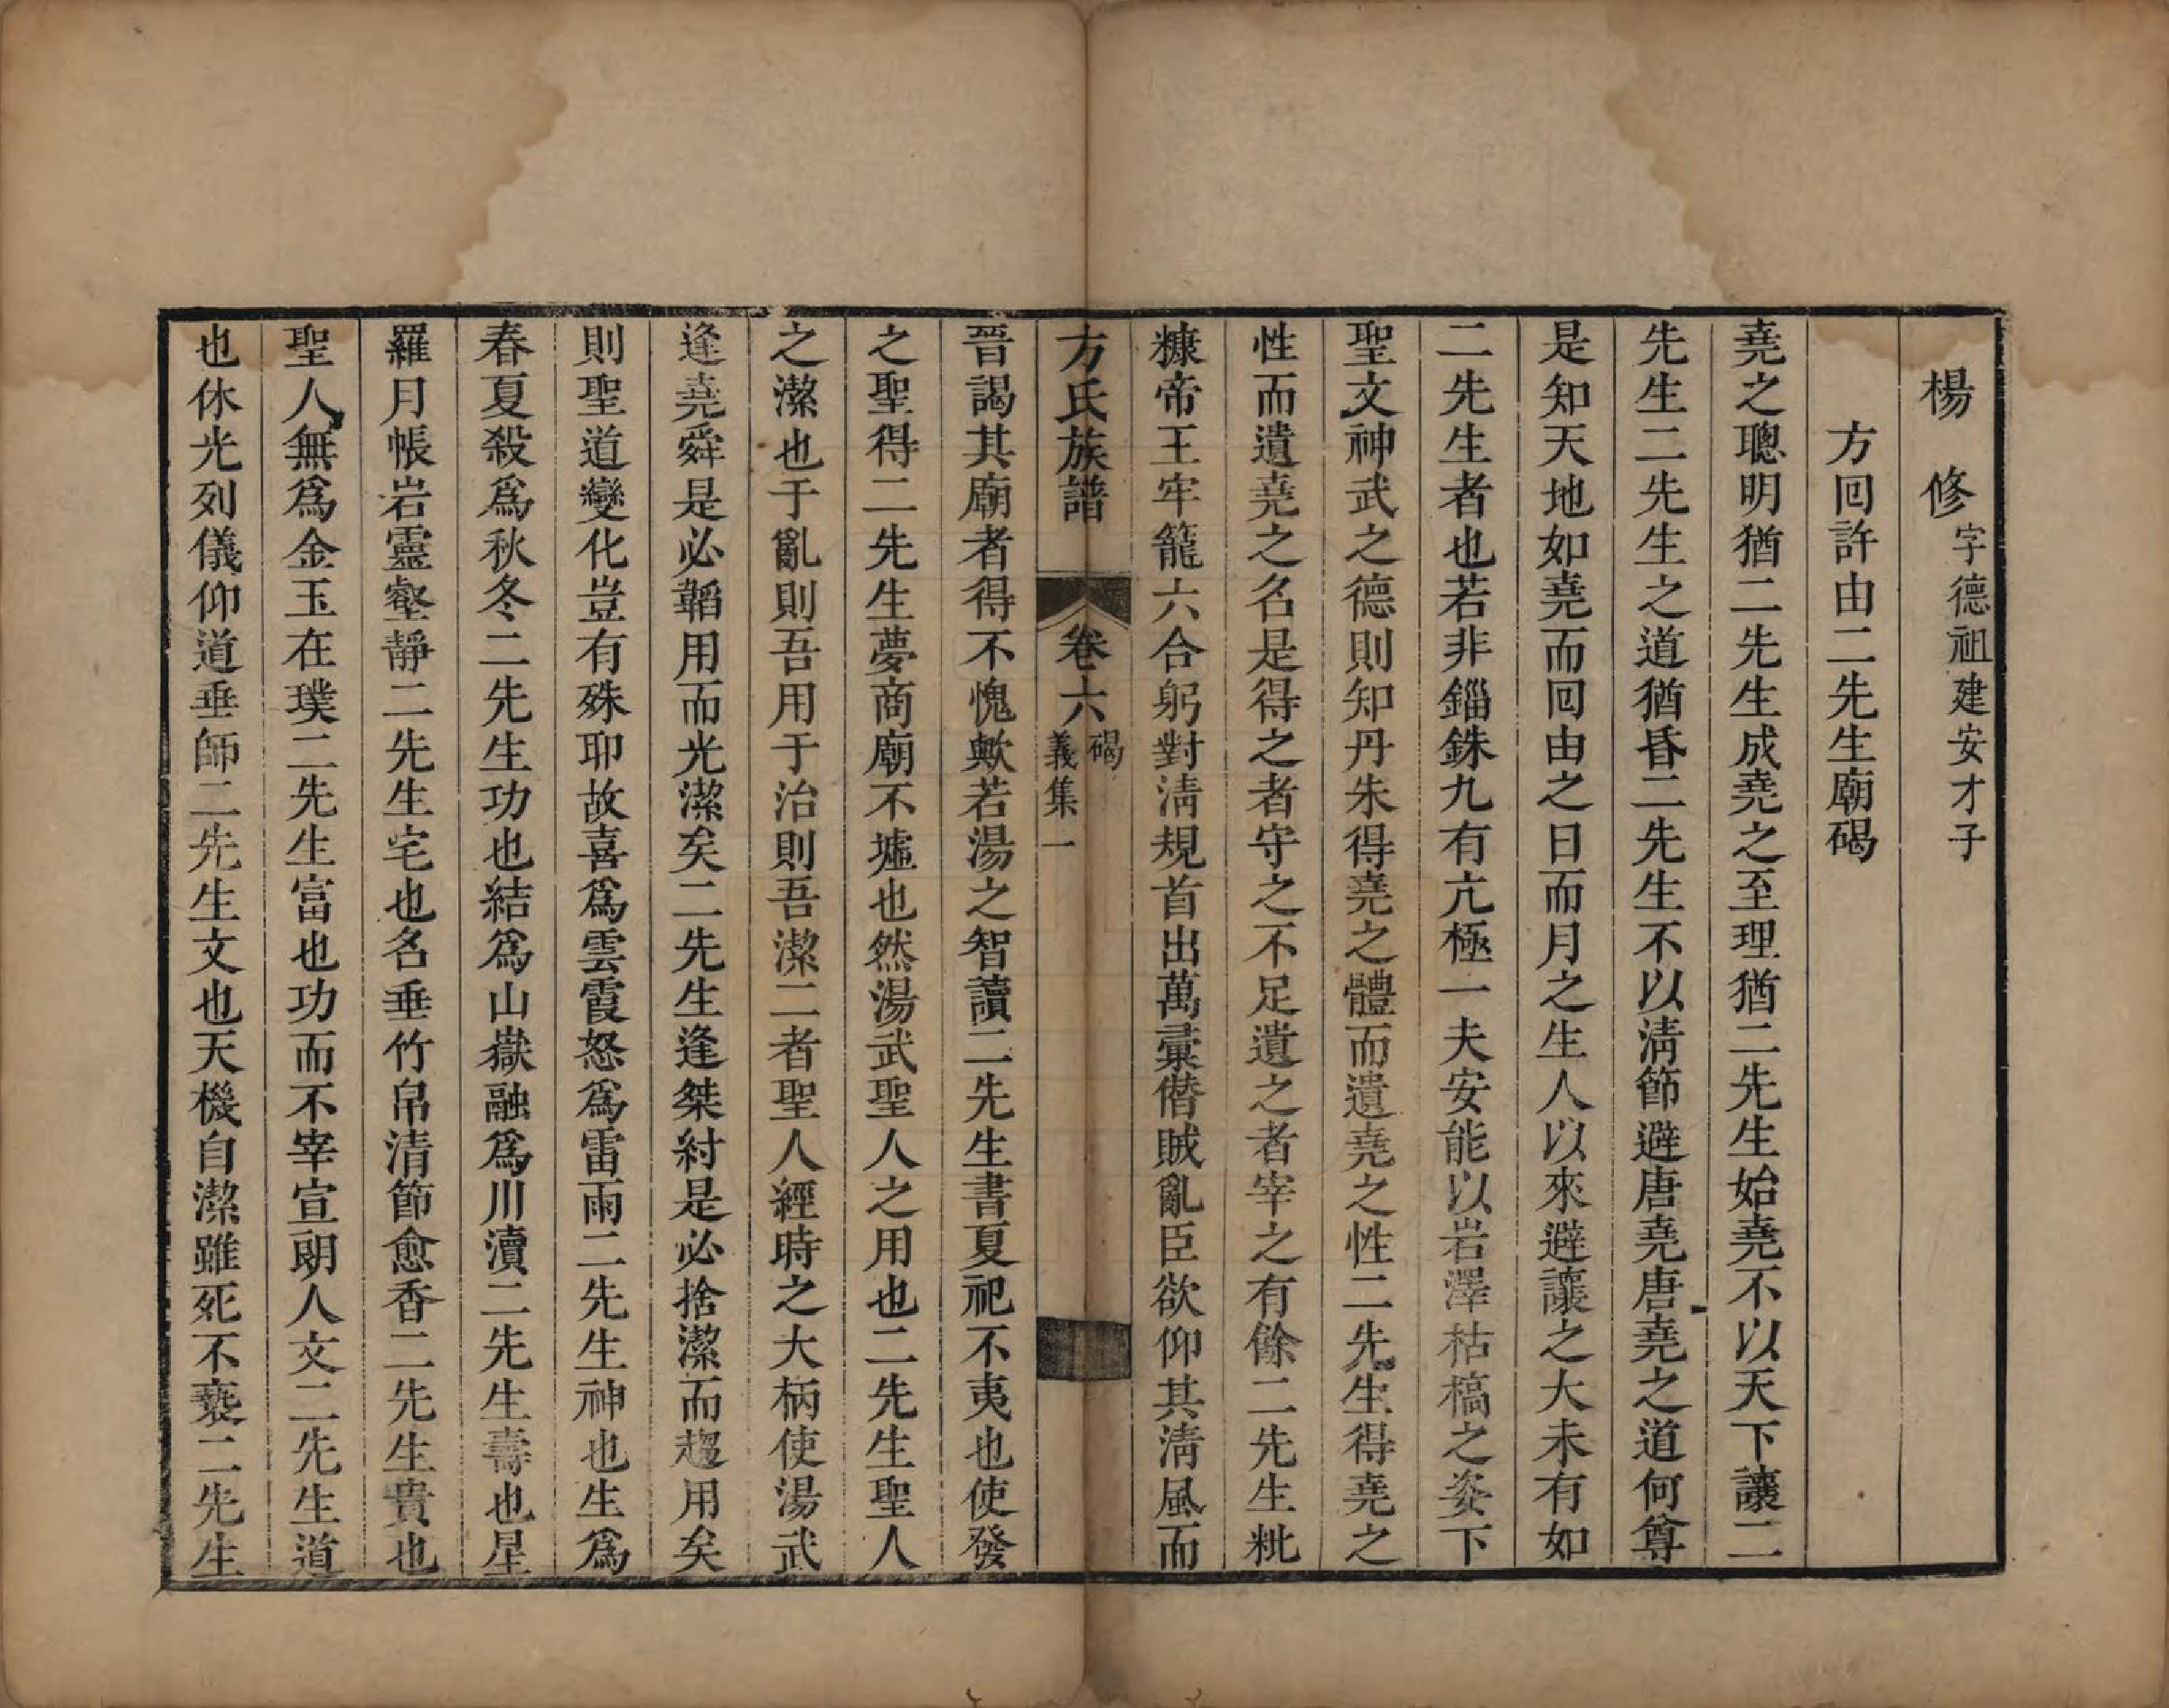 楊　修字德祖建安才子
方回許由二先生廟碣
堯之聰明猶二先生成堯之至理猶二先生始堯不以天下讓二
先生二先生之道猶昏二先生不以淸節避唐堯唐堯之道何尊
是知天地如堯而回由之日而月之生人以來避讓之大未有如
二先生者也若非錙銖九有亢極一夫安能以岩澤枯槁之姿下
聖文神武之德則知丹朱得堯之體而遺堯之性二先生得堯之
性而遺堯之名是得之者守之不足遺之者宰之有餘二先生粃
糠帝王牢籠六合躬對淸規首出萬彙僭賊亂臣欲仰其淸風而
方氏族譜　卷六　碣　義集一
晉謁其廟者得不愧歟若湯之智讀二先生書夏祀不夷也使發
之聖得二先生夢商廟不墟也然湯武聖人之用也二先生聖人
之潔也于亂則吾用于治則吾潔二者聖人經時之大柄使湯武
逢堯舜是必韜用而光潔矣二先生逢桀紂是必捨潔而趨用矣
則聖道變化豈有殊耶故喜爲雲霞怒爲雷雨二先生神也生爲
春夏殺爲秋冬二先生功也結爲山嶽融爲川瀆二先生壽也星
羅月帳岩靈壑靜二先生宅也名垂竹帛清節愈香二先生貴也
聖人無爲金玉在璞二先生富也功而不宰宣朗人文二先生道
也休光列儀仰道垂師二先生文也天機自潔雖死不褻二先生